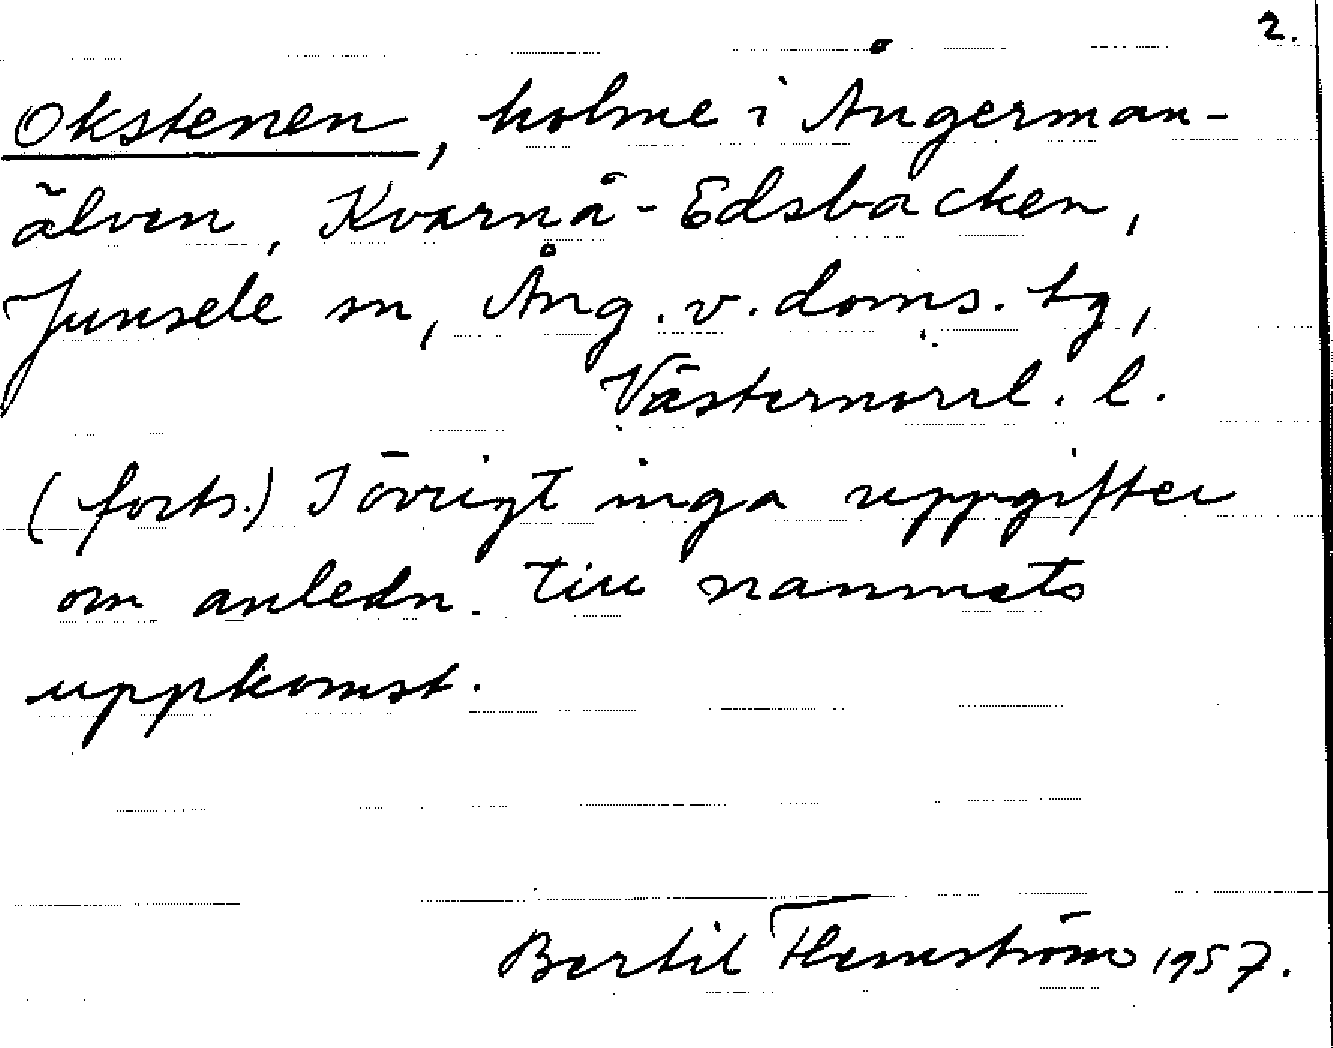 2.
Okstenen, holme i Ångerman-
älven, Kvarnå-Edsbacken,
Junsele sn, Ång. v. doms. tg,
Västernorrl. l.
(forts.) I övrigt inga uppgifter
om anledn. till namnets
uppkomst.
Bertil Flemström 1957.